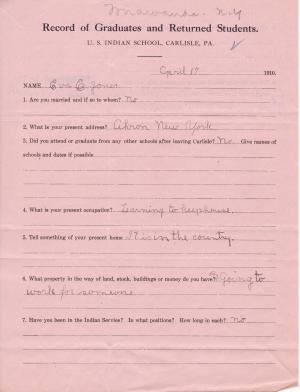 Tonawanda. N.Y
Record of Graduates and Returned Students.
U. S. INDIAN SCHOOL, CARLISLE, PA.
April 17 1910.
NAME Eva E Jones
1. Are you married and if so to whom? No
2. What is your present address? Akron New York
3. Did you attend or graduate from any other schools after leaving Carlisle? No. Give names of
schools and dates if possible
4. What is your present occupation? Learning to keephouse.
5. Tell something of your present home It is in the country.
6. What property in the way of land, stock, buildings or money do you have? Going to
work for someone
7. Have you been in the Indian Service? In what positions? How long in each? No